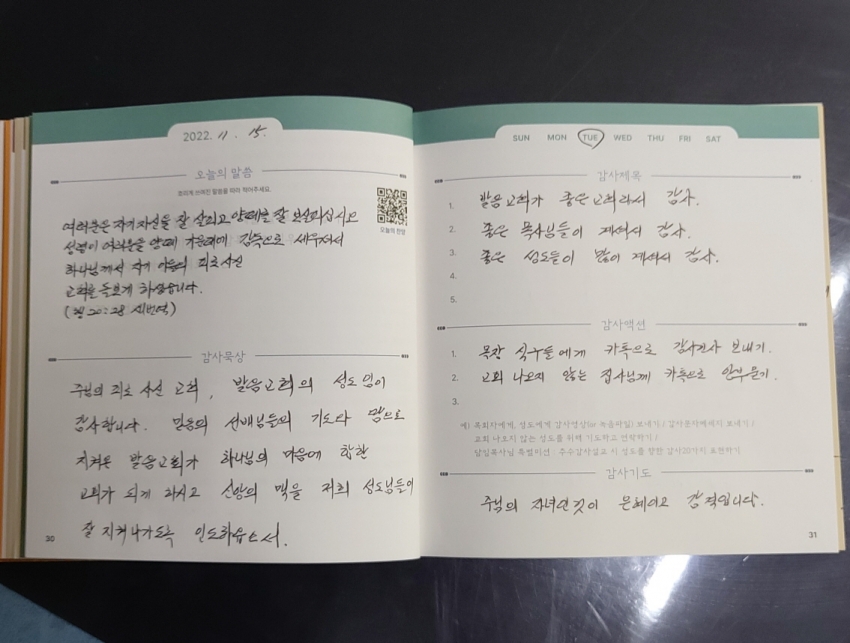 2022. 11. 15.
오늘의 말씀
흐리게 쓰여진 말씀을 따라 적어주세요.
오늘의 찬양
여러분은 자기 자신을 잘 살피고 양떼를 잘 보살피십시오
성령이 여러분을 양떼 가운데에 감독으로 세우셔서
하나님께서 자기 아들의 피로 사신
교회를 돌보게 하셨습니다.
(행 20:28 새번역)
감사묵상
주님의 피로 사신 교회, 발음교회의 성도 됨이
감사합니다. 믿음의 선배님들의 기도와 땀으로
지켜온 발음교회가 하나님의 마음에 합한
교회가 되게 하시고 신앙의 맥을 저희 성도님들이
잘 지켜나가도록 인도하옵소서.
30
SUN MON TUE WED THU FRI SAT
감사제목
1. 발음교회가 좋은 교회라서 감사.
2. 좋은 목사님들이 계셔서 감사.
3. 좋은 성도들이 많이 계셔서 감사.
4.
5.
감사액션
1. 목장 식구들에게 카톡으로 감사인사 보내기.
2. 교회 나오지 않는 집사님께 카톡으로 안부 묻기.
3.
예) 목회자에게, 성도에게 감사영상(or 녹음파일) 보내기 / 감사문자메세지 보내기 /
교회 나오지 않는 성도를 위해 기도하고 연락하기 /
담임목사님 특별미션 : 추수감사설교 시 성도를 향한 감사20가지 표현하기
감사기도
주님의 자녀인것이 은혜이고 감격입니다.
31